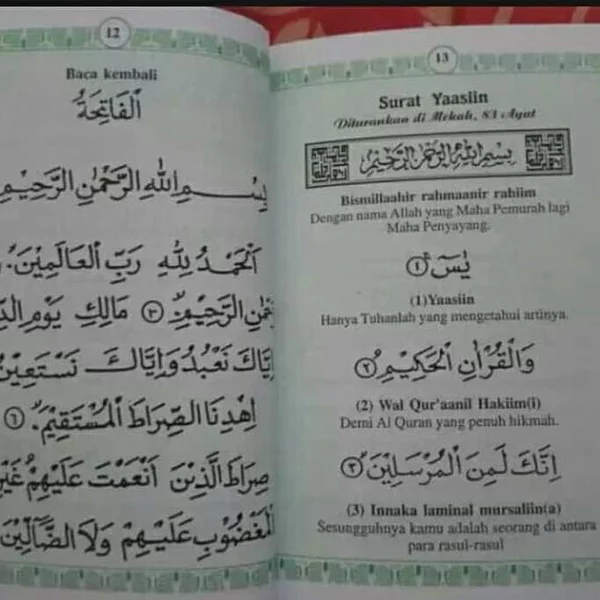 12
Baca kembali
اَلْفَاتِحَةُ
بِسْـــمِ اللهِ الرَّحْمٰنِ الرَّحِيْمِ
اَلْحَمْــدُ لِلّٰهِ رَبِّ الْعَالَمِيْنَ.
الرَّحِيْمِ ۝٣ مَالِكِ يَوْمِ
اِيَّاكَ نَعْبُدُ وَاِيَّاكَ نَسْتَعِيْنُ
اِهْدِنَا الصِّرَاطَ الْمُسْتَقِيْمَ. ۝٦
صِرَاطَ الَّذِيْنَ اَنْعَمْتَ عَلَيْهِمْ
الْمَغْضُوْبِ عَلَيْهِمْ وَلَا الضَّآلِّيْنَ
13
Surat Yaasiin
Diturunkan di Mekah, 83 Ayat
بِسْمِ اللهِ الرَّحْمٰنِ الرَّحِيْمِ
Bismillaahir rahmaanir rahiim
Dengan nama Allah yang Maha Pemurah lagi
Maha Penyayang.
يٰسٓ ۝١
(1)Yaasiin
Hanya Tuhanlah yang mengetahui artinya.
وَالْقُرْاٰنِ الْحَكِيْمِ ۝٢
(2) Wal Qur'aanil Hakiim(i)
Demi Al Quran yang penuh hikmah.
اِنَّكَ لَمِنَ الْمُرْسَلِيْنَ ۝٣
(3) Innaka laminal mursaliin(a)
Sesungguhnya kamu adalah seorang di antara
para rasul-rasul